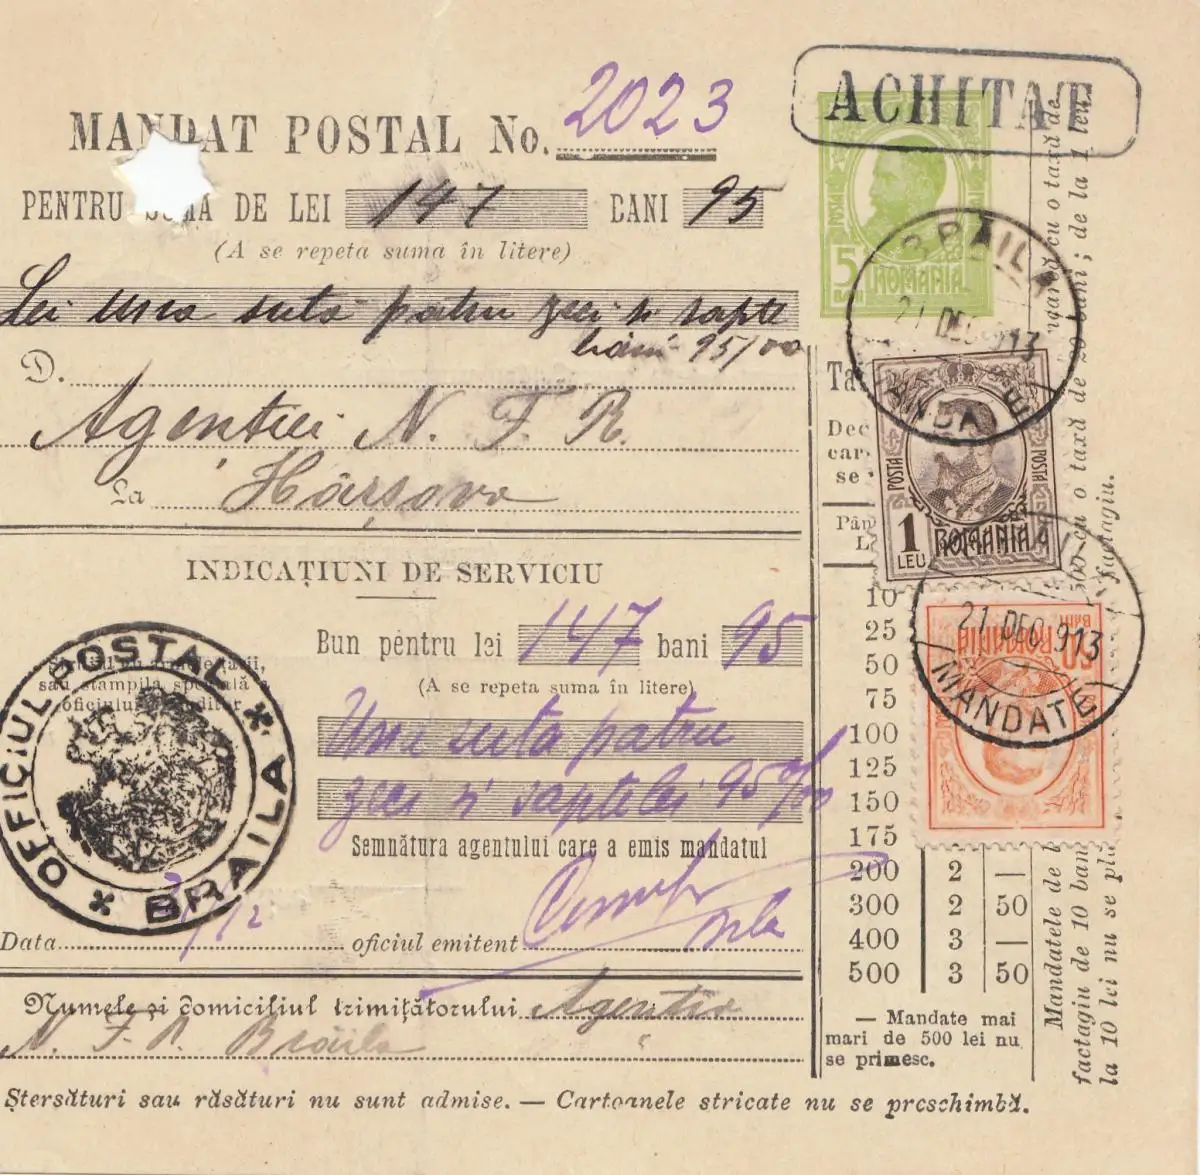 ACHITAT
MANDAT POSTAL No. 2023
PENTRU SUMA DE LEI 147 BANI 95
(A se repeta suma în litere)
Lei una suta patru zeci si sapte
bani 95/00
D.
Agenției N. F. R.
La Hârșova
INDICAȚIUNI DE SERVICIU
Bun pentru lei 147 bani 95
(A se repeta suma în litere)
Una suta patru
zeci si saptelei 95%00
Semnătura agentului care a emis mandatul
Data oficiul emitent
Numele și domiciliul trimițătorului Agentia
N. F. R. Brăila
Ștersături sau răsături nu sunt admise. — Cartoanele stricate nu se preschimbă.
OFICIUL POSTAL
* BRAILA *
POSTA POSTA
5 BANI ROMANIA
BRAILA
21 DEC 913
MANDATE
POSTA POSTA
1 LEU ROMANIA
21 DEC 913
MANDATE
50 BANI ROMANIA
Dec
car
se
10
25
50
75
100
125
150
175
200 2 —
300 2 50
400 3 —
500 3 50
— Mandate mai
mari de 500 lei nu
se primesc.
Mandatele de
cu o taxă de
factagiu de 10 bani; de la 1 leu
la 10 lei nu se
cu o taxă de 20 bani
factagiu.